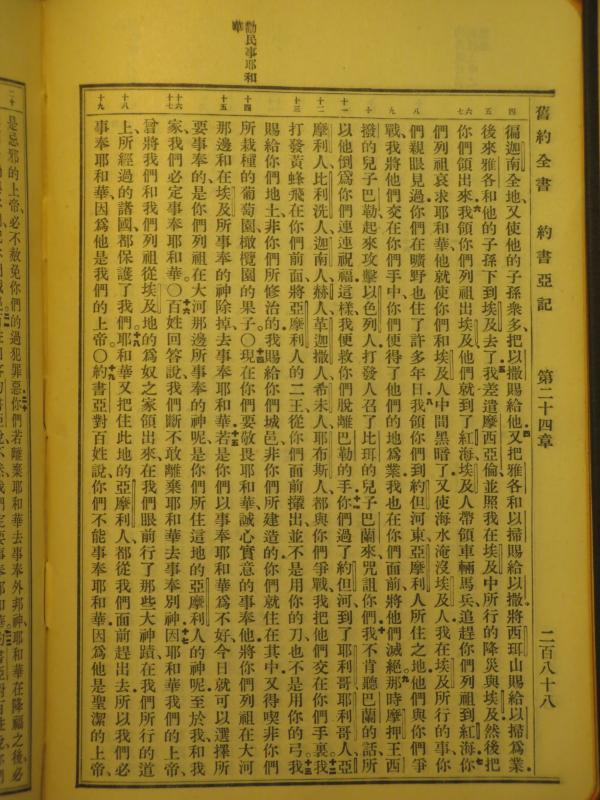 舊約全書　約書亞記　第二十四章　二百八十八
勸民事耶和華
四 五 六 七 八 九 十 十一 十二 十三 十四 十五 十六 十七 十八 十九
徧迦南全地、又使他的子孫衆多把以撒賜給他四又把雅各和以掃賜給以撒將西珥山賜給以掃爲業
後來雅各和他的子孫下到埃及去了五我差遣摩西亞倫並照我在埃及中所行的降災與埃及然後把
你們領出來六我領你們列祖出埃及他們就到了紅海埃及人帶領車輛馬兵追趕你們列祖到紅海七你
們列祖哀求耶和華他就使你們和埃及人中間黑暗了又使海水淹沒埃及人我在埃及所行的事你
們親眼見過你們在曠野也住了許多年日八我領你們到約但河東亞摩利人所住之地他們與你們爭
戰我將他們交在你們手中你們使得了他們的地爲業我也在你們面前將他們滅絕九那時摩押王西
撥的兒子巴勒起來攻擊以色列人打發人召了比珥的兒子巴蘭來咒詛你們十我不肯聽巴蘭的話所
以他倒爲你們連連祝福這樣我便救你們脫離巴勒的手十一你們過了約但河到了耶利哥耶利哥人、亞
摩利人、比利洗人、迦南人、赫人、革迦撒人、希未人、耶布斯人、都與你們爭戰我把他們交在你們手裏十二我
打發黃蜂飛在你們前面將亞摩利人的二王從你們面前攆出並不是用你的刀也不是用你的弓十三我
賜給你們地土非你們所修治的我賜給你們城邑非你們所建造的你們就住在其中又得喫非你們
所栽種的葡萄園橄欖園的果子〇十四現在你們要敬畏耶和華誠心實意的事奉他將你們列祖在大河
那邊和在埃及所事奉的神除掉去事奉耶和華十五若是你們以事奉耶和華爲不好今日就可以選擇所
要事奉的是你們列祖在大河那邊所事奉的神呢是你們所住這地的亞摩利人的神呢至於我和我
家我們必定事奉耶和華〇十六百姓回答說我們斷不敢離棄耶和華去事奉別神十七因耶和華我們的上帝、
曾將我們和我們列祖從埃及地的爲奴之家領出來在我們眼前行了那些大神蹟在我們所行的道
上所經過的諸國都保護了我們十八耶和華又把住此地的亞摩利人都從我們面前趕出去所以我們必
事奉耶和華因爲他是我們的上帝〇十九約書亞對百姓說你們不能事奉耶和華因爲他是聖潔的上帝、
是忌邪的上帝必不赦免你們的過犯罪惡二十你們若離棄耶和華去事奉外邦神耶和華在降福之後必